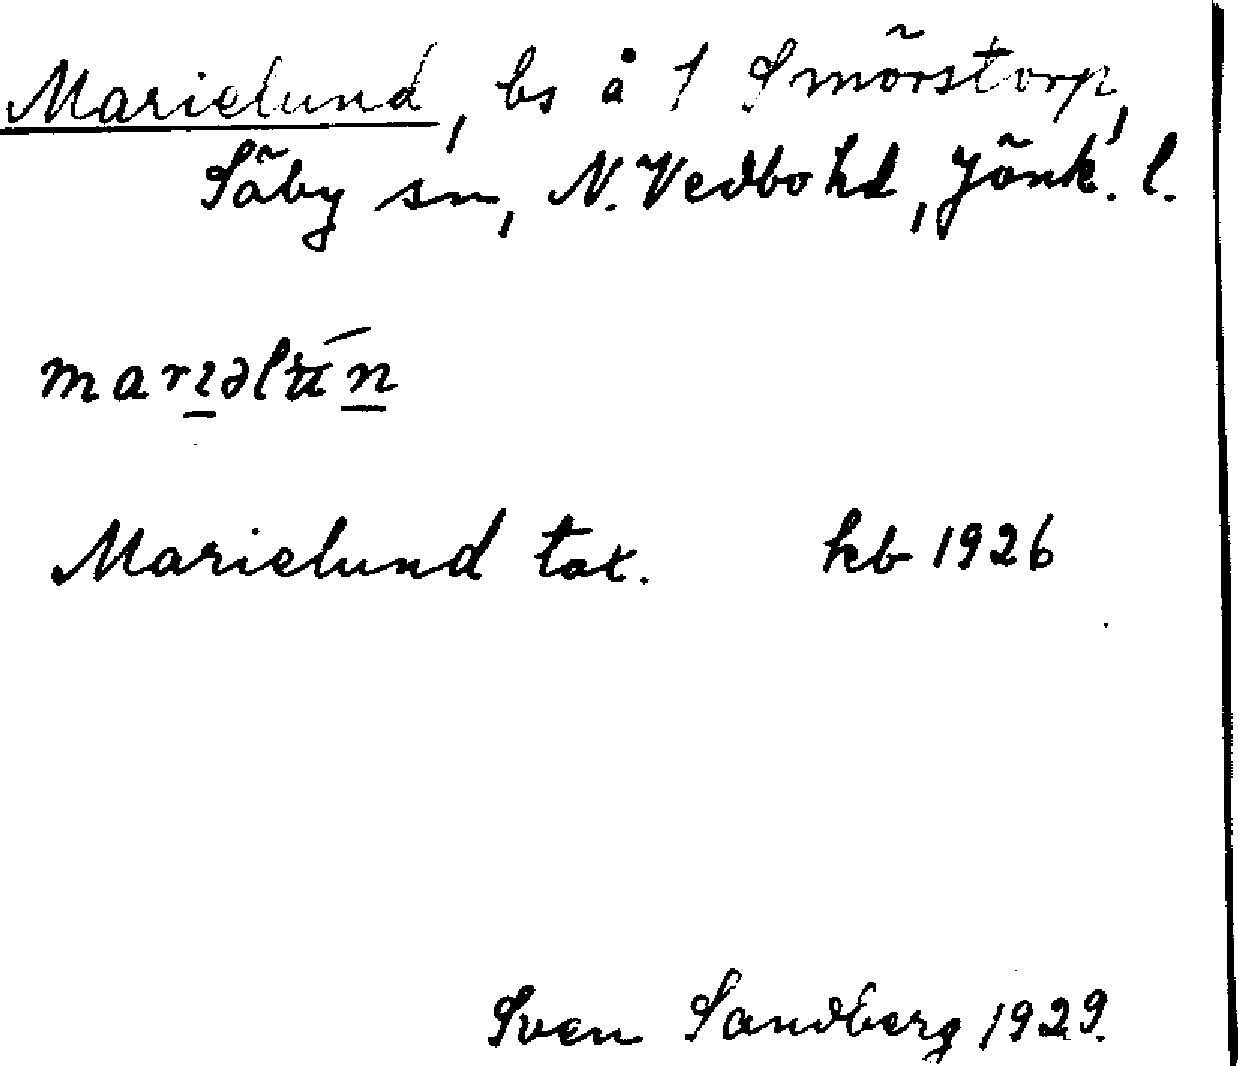 Marielund, bs å 1 Smörstorp,
Säby sn, N. Vedbo hd, Jönk. l.
marıəlún
Marielund tax. hb 1926
Sven Sandberg 1929.